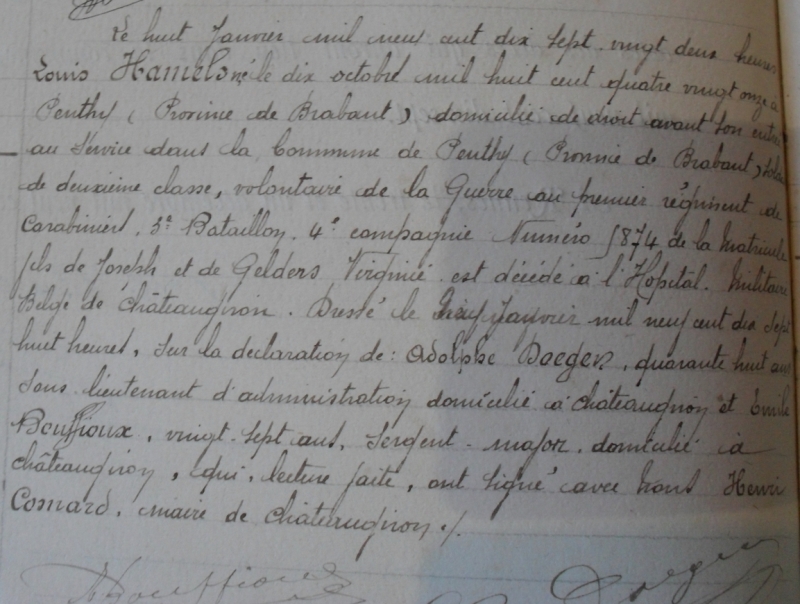 Le huit Janvier mil neuf cent dix sept. vingt deux heures
Louis Hamels né le dix octobre mil huit cent quatre vingt onze à
Peuthy (Province de Brabant) domicilié de droit avant son entrée
au Service dans la Commune de Peuthy (Province de Brabant), soldat
de deuxième classe, volontaire de la Guerre au premier régiment de
Carabiniers. 3e Bataillon. 4e compagnie Numéro 5874 de la Matricule
fils de Joseph et de Gelders Virginie est décédé à l'Hopital. Militaire
Belge de Châteaugiron. Dressé le neuf Janvier mil neuf cent dix sept
huit heures, sur la déclaration de: Adolphe Daegen, quarante huit ans
Sous lieutenant d'administration domicilié à Châteaugiron et Emile
Bouffioux, vingt-sept ans, Sergent-major, domicilié à
Châteaugiron, qui, lecture faite, ont signé avec Nous Henri
Cornard, maire de Châteaugiron ./.
Bouffioux Daegen